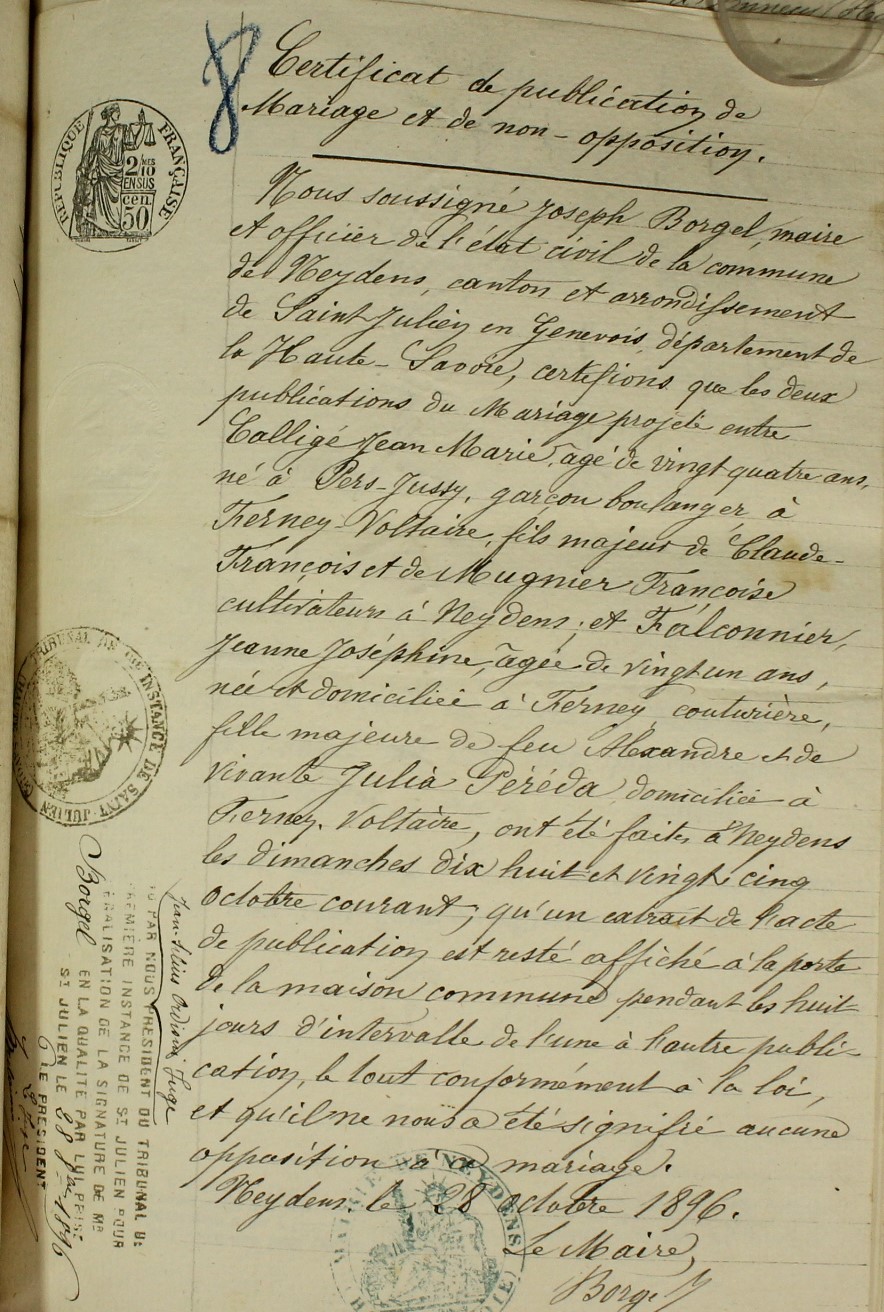 8
Certificat de publication de
Mariage et de non-opposition.
RÉPUBLIQUE FRANÇAISE
2/10 MES
EN SUS
50 cen.
Nous soussigné Joseph Borgel, maire
et officier de l'état civil de la commune
de Neydens, canton et arrondissement
de Saint Julien en Genevois, département de
la Haute-Savoie, certifions que les deux
publications du Mariage projeté entre
Calligé Jean Marie, âgé de vingt quatre ans,
né à Pers-Jussy, garçon boulanger à
Ferney-Voltaire, fils majeur de Claude-
François et de Mugnier Françoise
cultivateurs à Neydens; et Falconnier,
Jeanne Joséphine, âgée de vingt un ans,
née et domiciliée à Ferney, couturière,
fille majeure de feu Alexandre et de
vivante Julia Péréda domiciliée à
Ferney-Voltaire, ont été faites à Neydens
les dimanches dix huit et vingt cinq
octobre courant; qu'un extrait de l'acte
de publication est resté affiché à la porte
de la maison commune pendant les huit
jours d'intervalle de l'une à l'autre publi-
cation, le tout conformément à la loi,
et qu'il ne nous a été signifié aucune
opposition à ce mariage.
Neydens le 28 octobre 1896.
Le Maire,
Borgel
TRIBUNAL DE 1ère INSTANCE DE SAINT-JULIEN
Juge
VU PAR NOUS PRÉSIDENT DU TRIBUNAL DE
PREMIÈRE INSTANCE DE ST JULIEN POUR
LÉGALISATION DE LA SIGNATURE DE MR
Borgel EN LA QUALITÉ PAR LUI PRISE
ST JULIEN LE 28 8bre 1896
LE PRÉSIDENT
MAIRIE DE NEYDENS